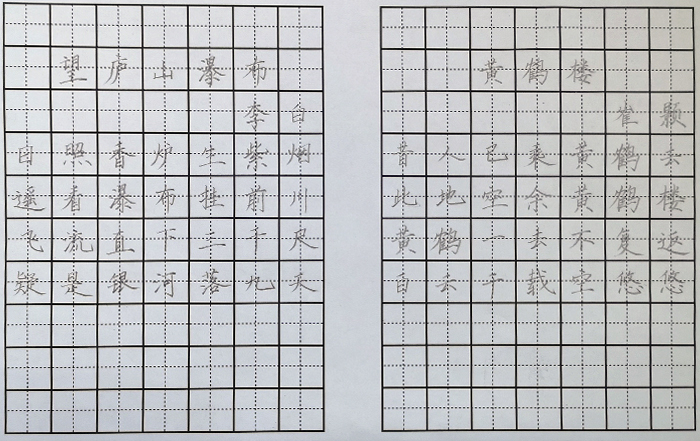 望庐山瀑布
李白
日照香炉生紫烟
遥看瀑布挂前川
飞流直下三千尺
疑是银河落九天
黄鹤楼
崔颢
昔人已乘黄鹤去
此地空余黄鹤楼
黄鹤一去不复返
白云千载空悠悠